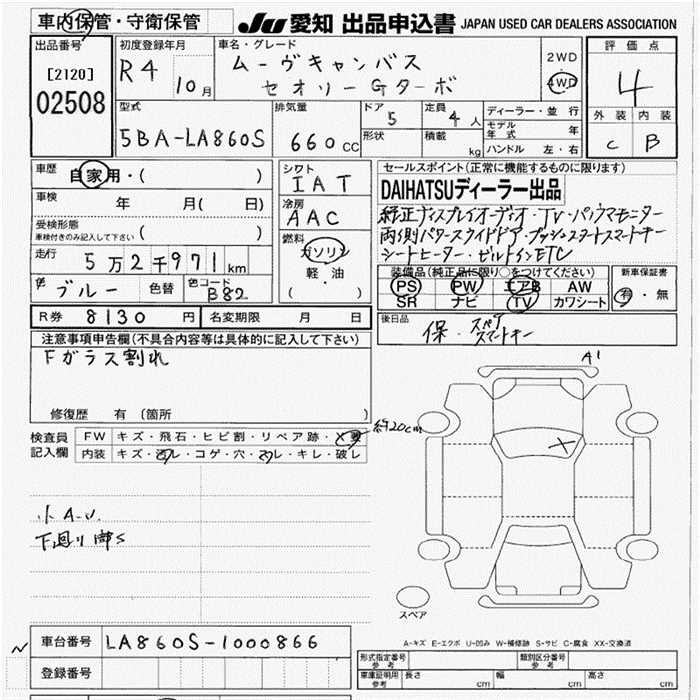 車内保管・守衛保管
JU 愛知 出品申込書 JAPAN USED CAR DEALERS ASSOCIATION
出品番号
[2120]
02508
初度登録年月
R4 10月
車名・グレード
ムーヴキャンバス
セオリーGターボ
2WD
4WD
評価点
4
外装 内装
C B
型式
5BA-LA860S
排気量
660cc
ドア
5
形状
定員
4人
積載
kg
ディーラー・並行
モデル年式 年
ハンドル 左・右
車歴
自家用・( )
車検
年 月( 日)
受検形態
車検付きのみ記入して下さい ( )
走行
5万2千971km
色
ブルー
色替
色コード
B82
シフト
IAT
冷房
AAC
燃料
ガソリン
軽油
( )
セールスポイント(正常に機能するものに限ります)
DAIHATSUディーラー出品
純正ディスプレイオーディオ・TV・パノラマモニター
両側パワースライドドア・プッシュスタートスマートキー
シートヒーター・ビルトインETC
装備品(純正品に限り○をつけてください)
PS PW エアB AW
SR ナビ TV カワシート
新車保証書
有・無
R券 8130円
名変期限 月 日
後日品
保・スペアスマートキー
注意事項申告欄(不具合内容等は具体的に記入して下さい)
Fガラス割れ
修復歴 有(箇所 )
検査員
記入欄
FW キズ・飛石・ヒビ割・リペア跡・X要
内装 キズ・汚レ・コゲ・穴・スレ・キレ・破レ
約20cm
A1
X
小A.U.
下廻り錆S
スペア
車台番号 LA860S-1000866
登録番号
A-キズ E-エクボ U-凹み W-補修跡 S-サビ C-腐食 XX-交換済
形式指定番号
参考
類別区分番号
参考
車庫証明用
参考
長さ cm 幅 cm 高さ cm